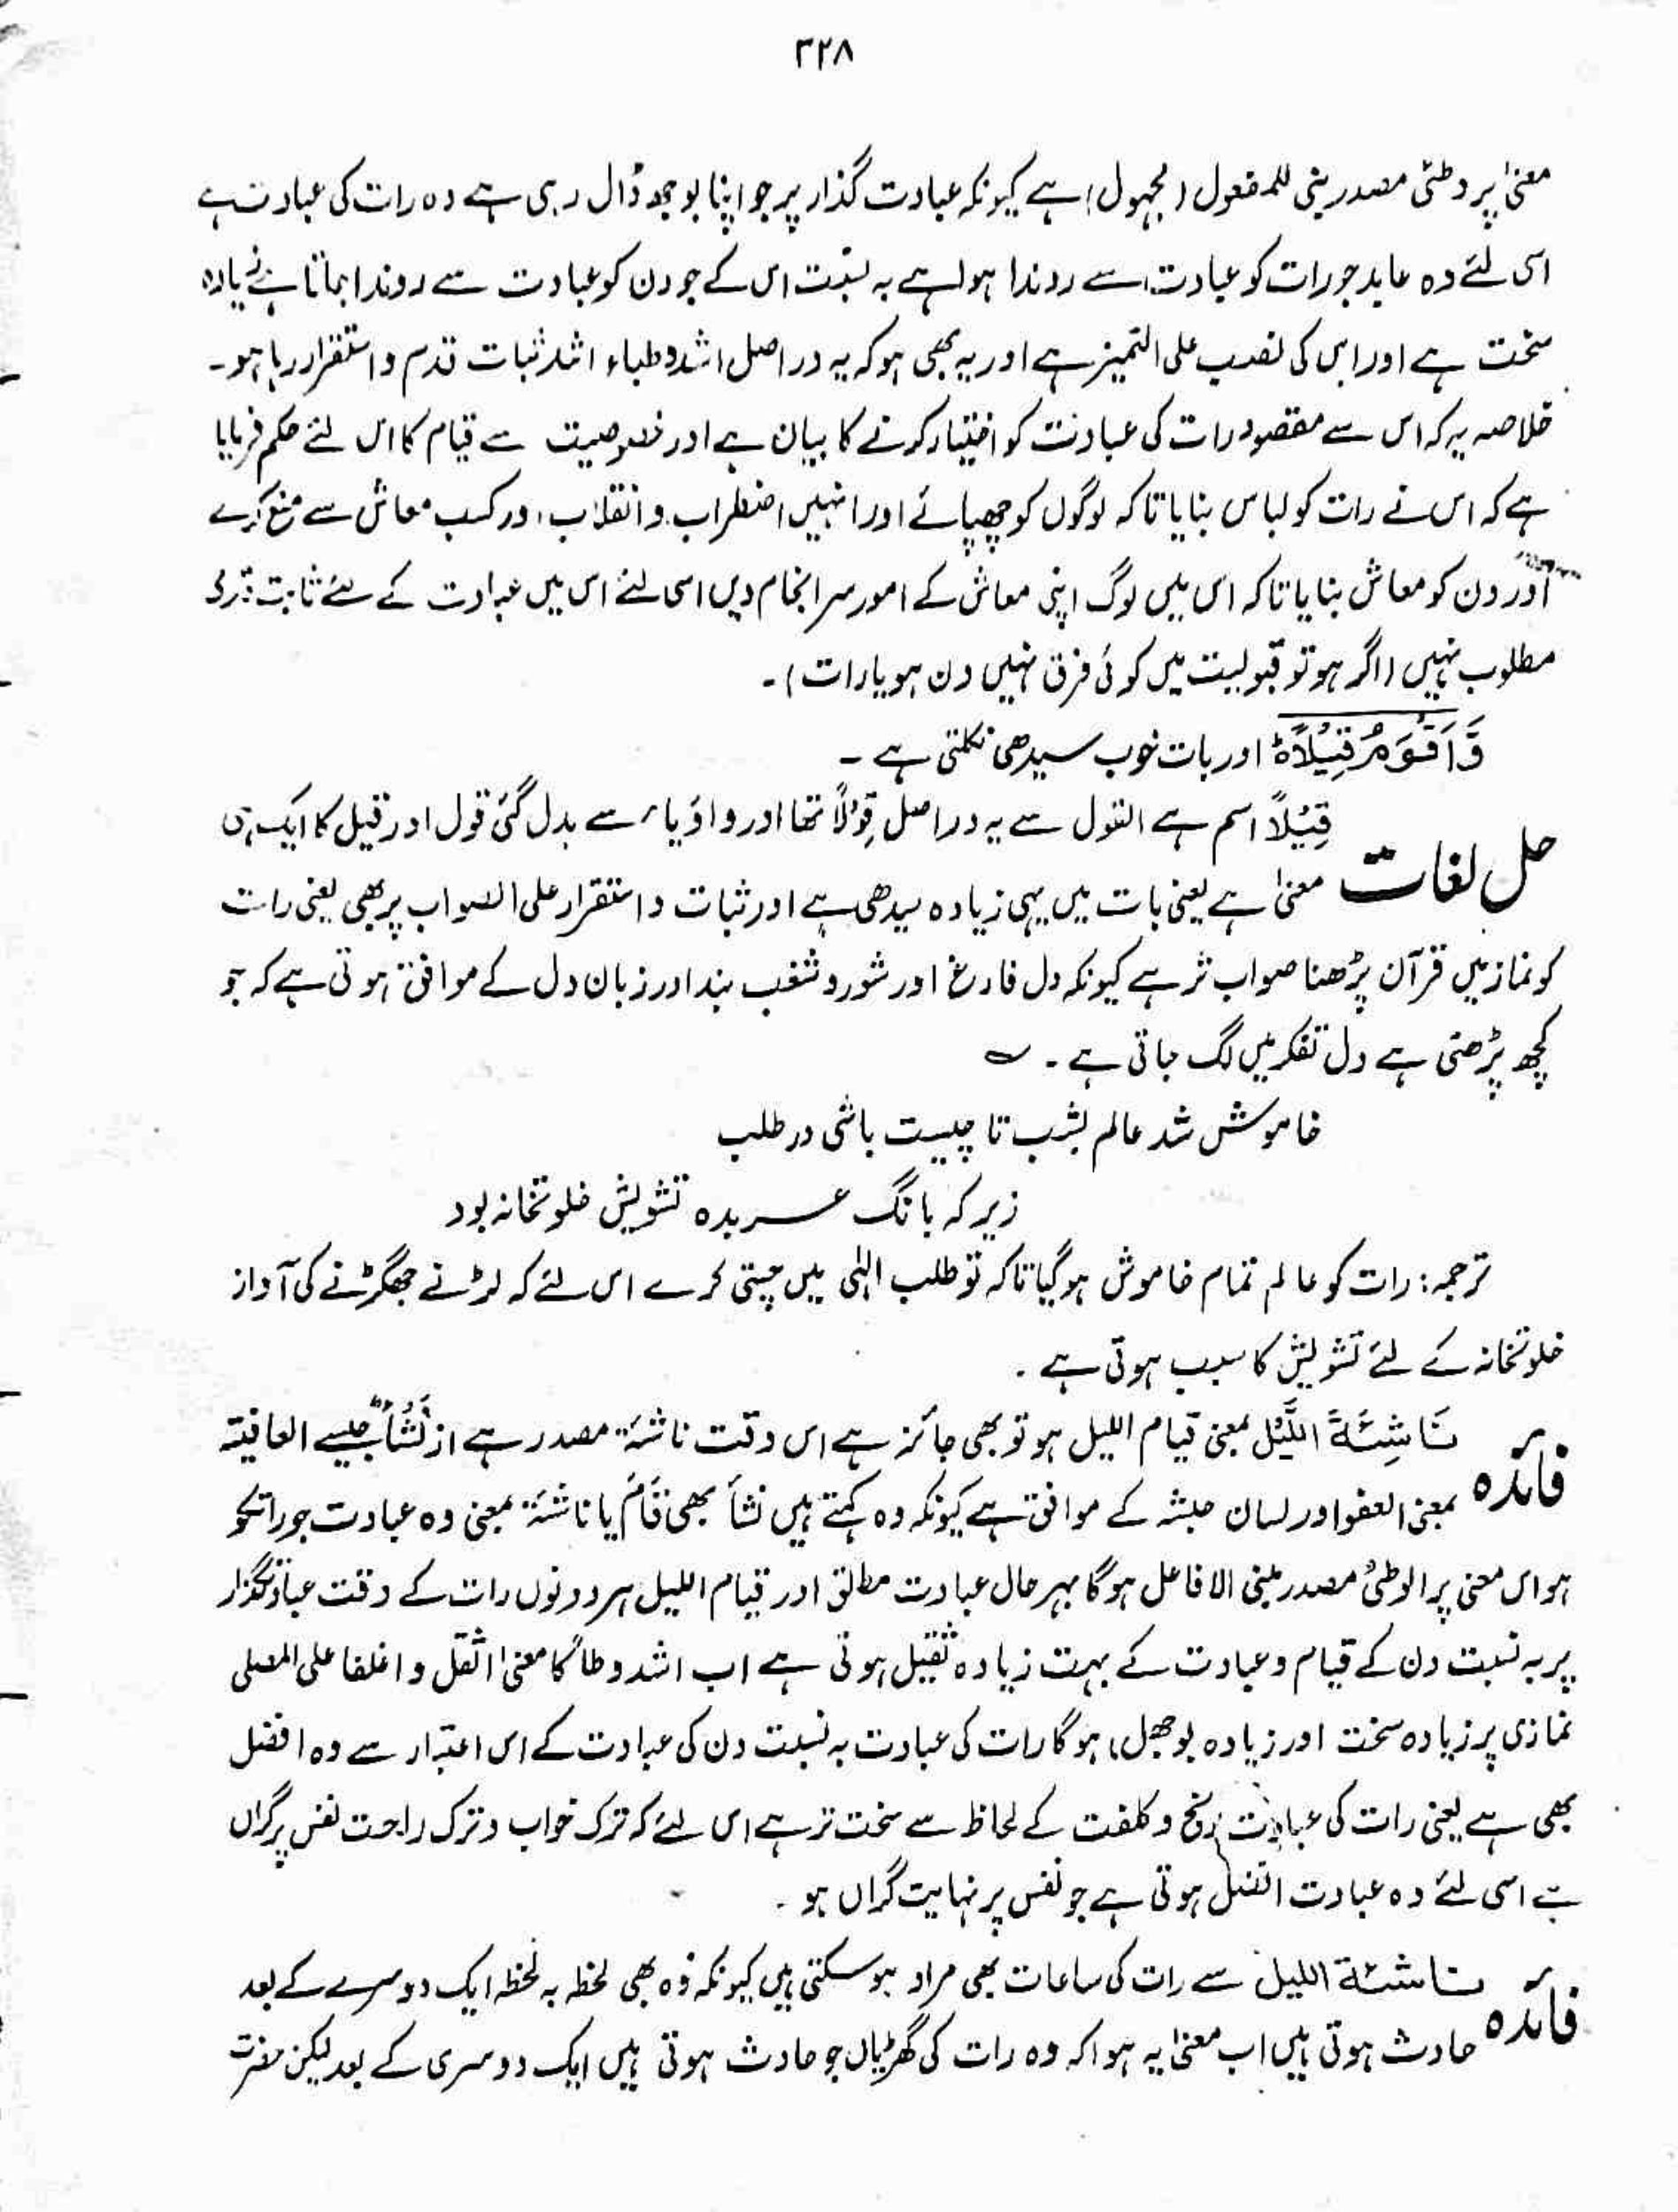 ۳۲۸
معنیٰ پر وطئی مصدر مبنی للمفعول (مجہول) ہے کیونکہ عبادت گذار پر جو اپنا بوجھ ڈال رہی ہے وہ رات کی عبادت ہے
اسی لئے وہ عابد جو رات کو عبادت سے روندا ہوا ہے بہ نسبت اس کے جو دن کو عبادت سے روندا جاتا ہے زیادہ
سخت ہے اور اس کی نصب علی التمیز ہے اور یہ بھی ہو کہ یہ دراصل اشد وطاء اشد ثبات قدم و استقرار رہا ہو۔
خلاصہ یہ کہ اس سے مقصود رات کی عبادت کو اختیار کرنے کا بیان ہے اور خصوصیت سے قیام کا اس لئے حکم فرمایا
ہے کہ اس نے رات کو لباس بنایا تاکہ لوگوں کو چھپائے اور انہیں اضطراب و انقلاب اور کسب معاش سے منع کرے
اور دن کو معاش بنایا تاکہ اس میں لوگ اپنی معاش کے امور سر انجام دیں اسی لئے اس میں عبادت کے لئے ثابت قدمی
مطلوب نہیں (اگر ہو تو قبولیت میں کوئی فرق نہیں دن ہو یا رات)۔
وَّاَقْوَمُ قِیْلًاؕ اور بات خوب سیدھی نکلتی ہے ۔
حل لغات قِیْلًا اسم ہے القول سے یہ دراصل قِوْلًا تھا اور واؤ یاء سے بدل گئی قول اور قیل کا ایک ہی
معنیٰ ہے یعنی بات میں یہی زیادہ سیدھی ہے اور ثبات و استقرار علی الصواب پر بھی یعنی رات
کو نماز میں قرآن پڑھنا صواب تر ہے کیونکہ دل فارغ اور شور و شغب بند اور زبان دل کے موافق ہوتی ہے کہ جو
کچھ پڑھتی ہے دل تفکر میں لگ جاتی ہے ۔ ؎
خاموش شد عالم بشب تا چیست باشی در طلب
زیر کہ بانگ عربدہ تشویش خلوتخانہ بود
ترجمہ: رات کو عالم تمام خاموش ہو گیا تاکہ تو طلب الٰہی میں چستی کرے اس لئے کہ لڑنے جھگڑنے کی آواز
خلوتخانہ کے لئے تشویش کا سبب ہوتی ہے ۔
فائدہ نَاشِئَةَ اللَّیْلِ بمعنی قیام اللیل ہو تو بھی جائز ہے اس وقت ناشئۃ مصدر ہے از نَشَأَ جیسے العافیۃ
بمعنی العفو اور لسان حبشہ کے موافق ہے کیونکہ وہ کہتے ہیں نشأ بھی قَامَ یا ناشئۃ بمعنی وہ عبادت جو راتکو
ہو اس معنی پر الوطئُ مصدر مبنی الا فاعل ہو گا بہرحال عبادت مطلق اور قیام اللیل ہر دونوں رات کے وقت عبادتگذار
پر بہ نسبت دن کے قیام و عبادت کے بہت زیادہ ثقیل ہوتی ہے اب اشد وطأ کا معنیٰ اثقل و اغلفا علی المصلی
نمازی پر زیادہ سخت اور زیادہ بوجھل) ہو گا رات کی عبادت بہ نسبت دن کی عبادت کے اس اعتبار سے وہ افضل
بھی ہے یعنی رات کی عبادت رنج و کلفت کے لحاظ سے سخت تر ہے اس لئے کہ ترک خواب و ترک راحت نفس پر گراں
ہے اسی لئے وہ عبادت افضل ہوتی ہے جو نفس پر نہایت گراں ہو ۔
فائدہ ناشئۃ اللیل سے رات کی ساعات بھی مراد ہو سکتی ہیں کیونکہ وہ بھی لحظہ بہ لحظہ ایک دوسرے کے بعد
حادث ہوتی ہیں اب معنیٰ یہ ہوا کہ وہ رات کی گھڑیاں جو حادث ہوتی ہیں ایک دوسری کے بعد لیکن حضرت